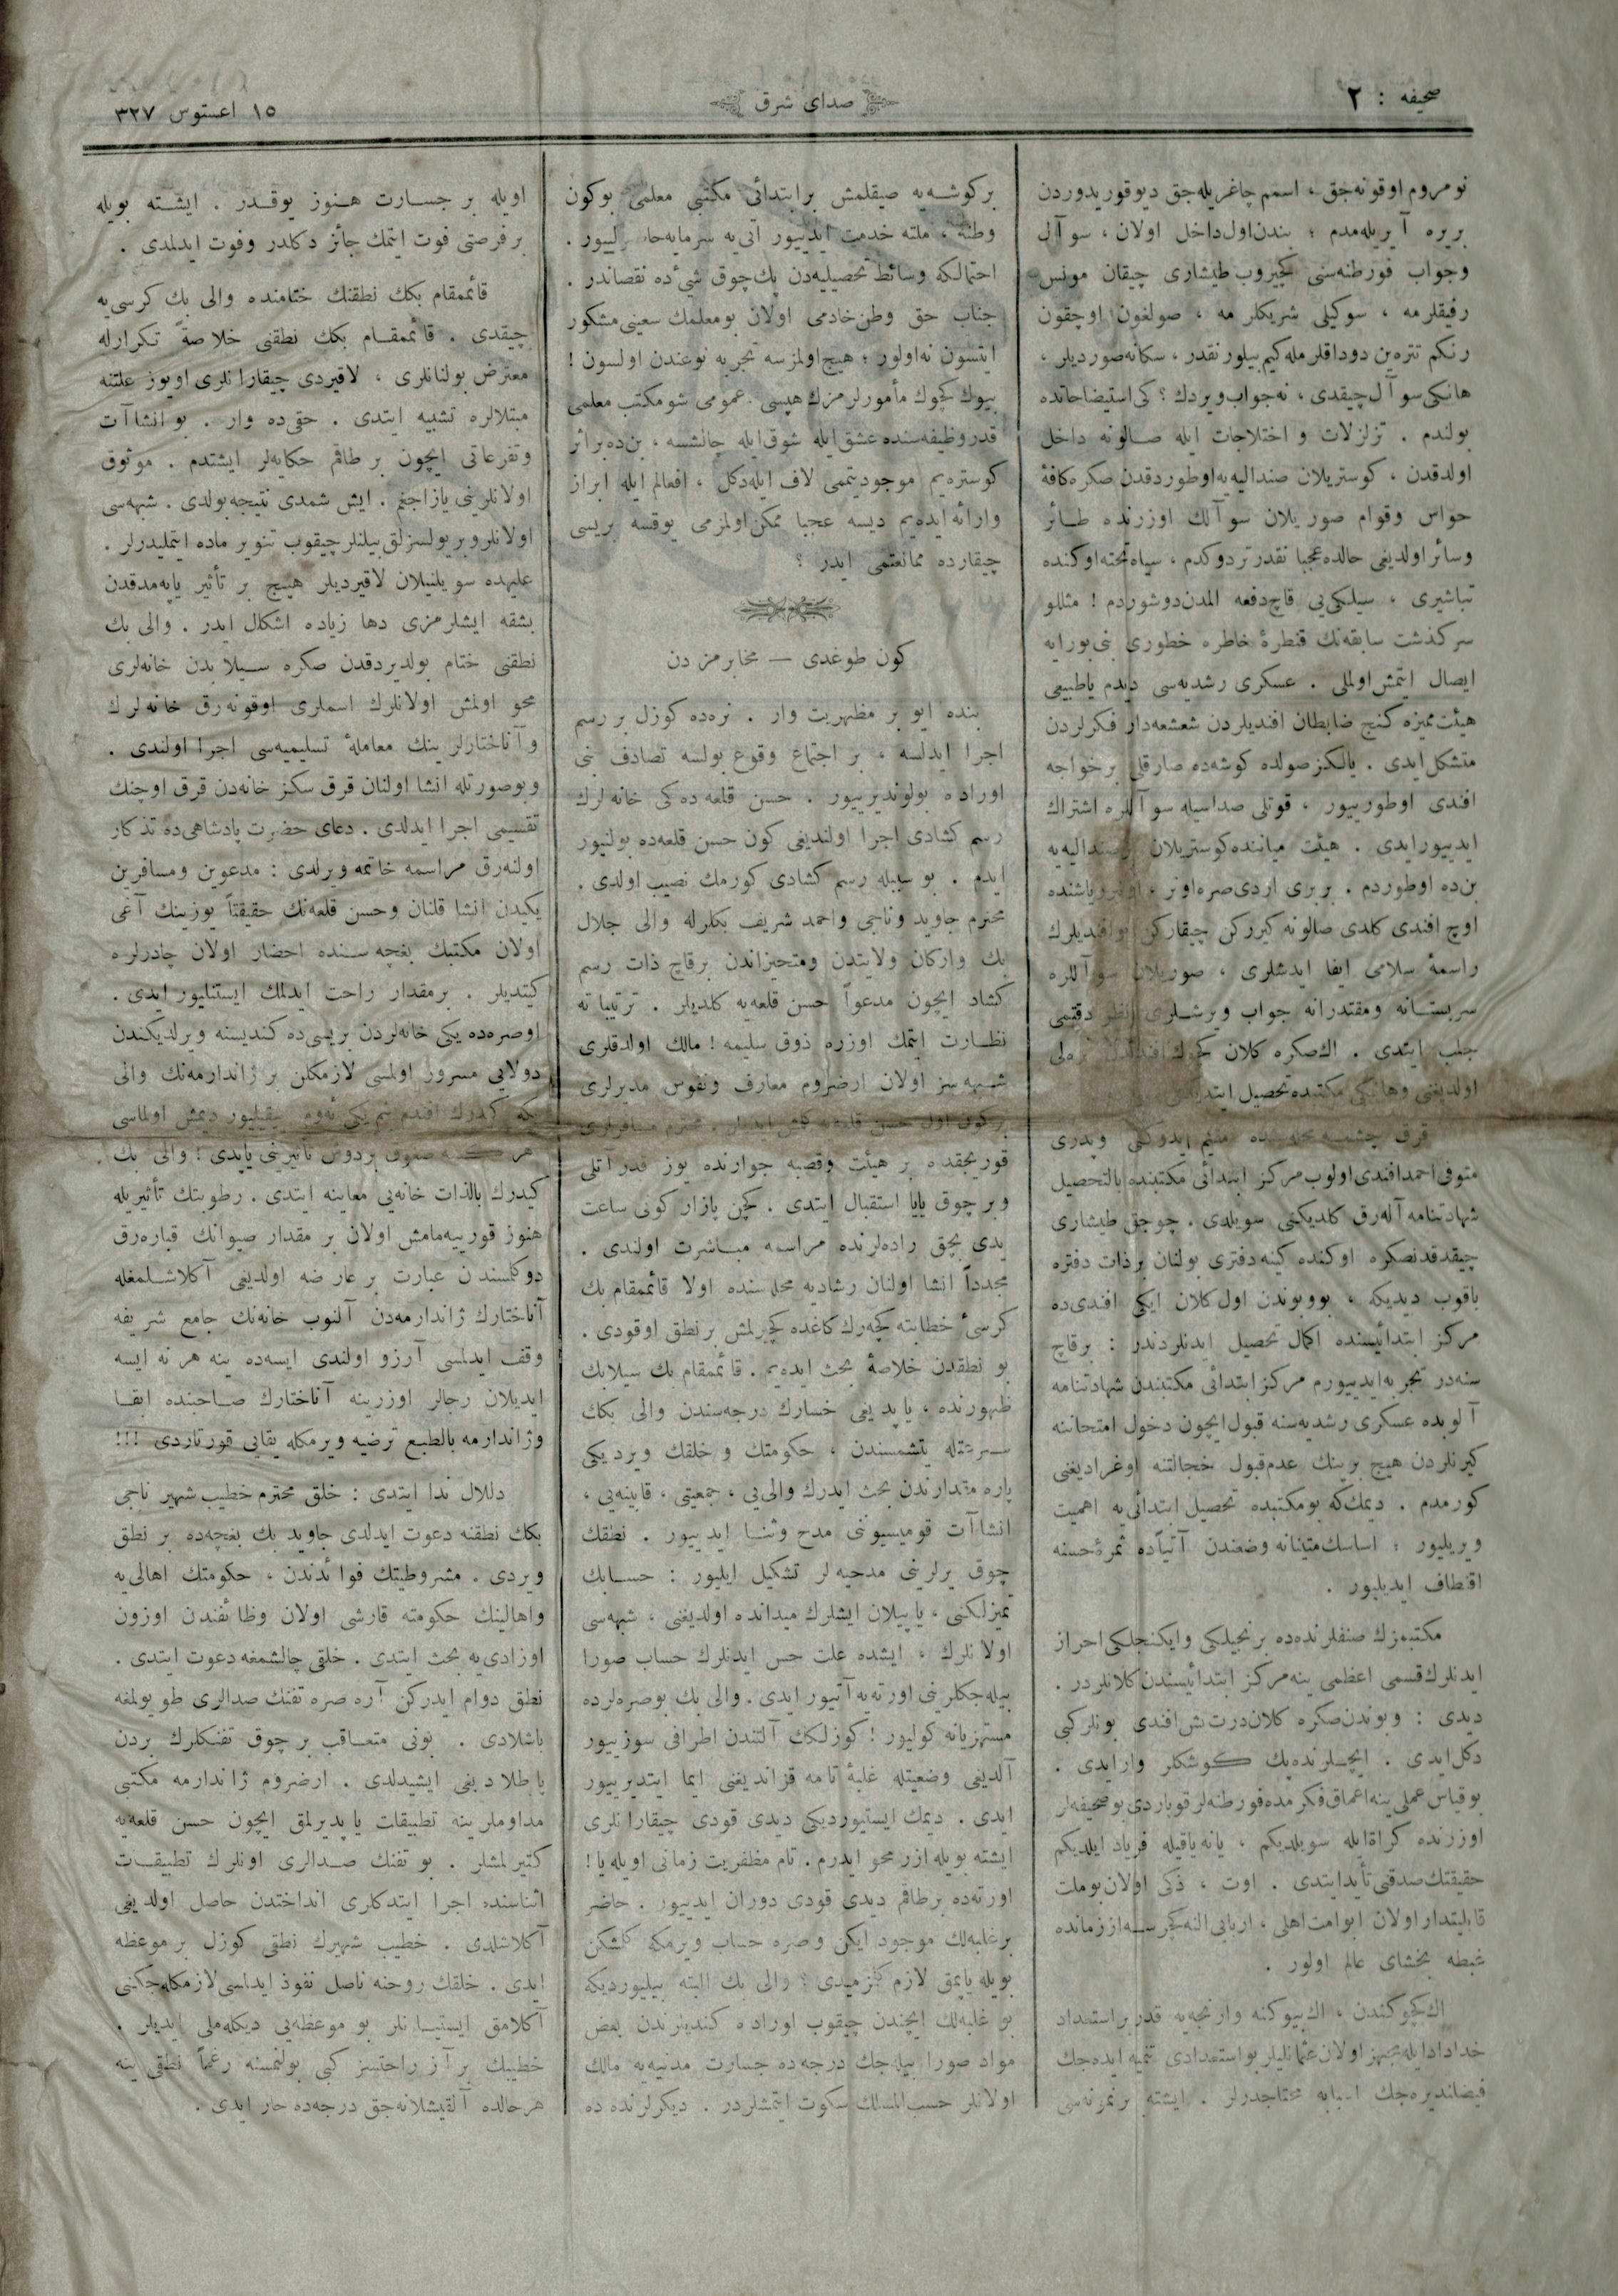 صحیفه : ٢
صدای شرق
١٥ اغستوس ٣٢٧
نومروم اوقونه‌جق ، اسمم چاغریله‌جق دیوقوریدوردن
بریره آیریله‌مدم ؛ بندن‌اول‌داخل اولان ، سوآل
وجواب فورطنه‌سنی کچیروب طیشاری چیقان مونس
رفیقلرمه ، سوکیلی شریکلرمه ، صولغون اوچقون
رنکم تتره‌ین دوداقلرمله‌کیم بیلورنقدر ، سکانه‌صوردیلر ،
هانکی سوآل چیقدی ، نه‌جواب ویردك ؟ کی استیضاحاتده
بولندم . تزلزلات و اختلاجات ایله صالونه داخل
اولدقدن ، کوستریلان صندالیه‌یه‌اوطوردقدن صکره‌کافهٔ
حواس وقوام صوریلان سوآلك اوزرنده طائر
وسائراولدیغی حالده‌عجبا نقدرتردوکدم ، سیاه تخته‌اوکنده
تباشیری ، سیلکی‌یی قاچ‌دفعه المدن‌دوشوردم ! مثللو
سرکذشت سابقه‌نك قنطرهٔ خاطره خطوری بنی‌بورایه
ایصال ایتمش‌اولملی . عسکری رشدیه‌سی دیدم یاطبیعی
هیئت‌ممیزه کنج ضابطان افندیلردن شعشعه‌دار فکرلردن
متشکل‌ایدی . یالکزصولده کوشه‌ده صارقلی برخواجه
افندی اوطورییور ، قوتلی صداسیله سوآللره اشتراك
ایدییورایدی . هیئت میاننده‌کوستریلان صندالیه‌یه
بن‌ده اوطوردم . بربری اردی‌صره‌اونر ، باشنده
اوچ افندی کلدی صالونه کیررکن چیقارکن بوافندیلرك
راسمهٔ سلامی ایفا ایدشلری ، صوریلان سوآللره
سربستانه ومقتدرانه جواب ویرشلری نظردقتمی
جلب ایتدی . اك‌صکره کلان کوچك افندینك نره‌لی
اولدیغنی وهانکی مکتبده‌تحصیل ایتدیکنی
قرق چشمه محله‌سنده مقیم ایدوکنی وپدری
متوفی احمدافندی‌اولوب مرکز ابتدائی مکتبنده بالتحصیل
شهادتنامه آله‌رق کلدیکنی سویلدی . چوجق طیشاری
چیقدقدنصکره اوکنده کینه‌دفتری بولنان برذات دفتره
باقوب دیدیکه ، بووبوندن اول‌کلان ایکی افندی‌ده
مرکز ابتدائیسنده اکمال تحصیل ایدنلردندر : برقاچ
سنه‌در تجربه‌ایدییورم مرکزابتدائی مکتبندن شهادتنامه
آلوبده عسکری رشدیه‌سنه قبول‌ایچون دخول امتحاننه
کیرنلردن هیچ برینك عدم‌قبول خجالتنه اوغرادیغنی
کورمدم . دیمك‌که بومکتبده تحصیل ابتدائی‌یه اهمیت
ویریلیور ؛ اساسك‌متینانه وضعندن آتیاًده ثمرهٔ‌حسنه
اقتطاف ایدیلیور .
مکتبمزك صنفلرنده‌ده برنجیلکی وایکنجیلکی احراز
ایدنلرك‌قسمی اعظمی ینه‌مرکز ابتدائیسندن‌کلانلردر .
دیدی : وبوندن‌صکره کلان‌درت‌بش‌افندی بونلرکبی
دکل‌ایدی . ایچلرنده‌پك کوشکلر وارایدی .
بوقیاس‌عملی ینه‌اعماق‌فکرمده‌فورطنه‌لرقوپاردی‌بوصحیفه‌لر
اوزرنده کراةایله سویلدیکم ، یانه‌یاقیله فریاد ایلدیکم
حقیقتك‌صدقنی‌تأیدایتدی . اوت ، ذکی اولان‌بوملت
قابلیتداراولان ابوامت‌اهلی ، اربابی‌النه‌کچرسه‌اززمانده
غبطه بخشای عالم اولور .
اك‌کچوکندن ، اك‌بیوکنه وارنجه‌یه قدربراستعداد
خدادادایله‌مجهز اولان‌عثمانلیلربواستعدادی تنمیه ایده‌جك
فیضاندیره‌جك اسبابه محتاجدرلر . ایشته برنمرنه‌سی
برکوشه‌یه صیقلمش برابتدائی مکتبی معلمی بوکون
وطنه ، ملته خدمت ایدییور آتی‌یه سرمایه‌حاضرلییور .
احتمالکه وسائط تحصیلیه‌دن پك‌چوق شیئده نقصاندر .
جناب حق وطن‌خادمی اولان بومعلمك سعینی مشکور
ایتسون نه‌اولور ؛ هیچ‌اولمزسه تجربه نوعندن اولسون !
بیوك کچوك مأمورلرمزك هپسی عمومی شومکتب معلمی
قدروظیفه‌سنده عشق‌ایله شوق‌ایله چالشسه ، بن‌ده‌براثر
کوستره‌یم موجودیتمی لاف ایله‌دکل ، افعالم ایله ابراز
وارائه‌ایده‌یم دیسه عجبا ممکن‌اولمزمی یوقسه بریسی
چیقارده ممانعتمی ایدر ؟
کون طوغدی — مخابرمزدن
بنده ایو بر مظهریت وار . نره‌ده کوزل بررسم
اجرا ایدلسه ، بر اجتماع وقوع بولسه تصادف بنی
اوراده بولوندیرییور . حسن قلعه‌ده‌کی خانه‌لرك
رسم کشادی اجرا اولندیغی کون حسن قلعه‌ده بولنیور
ایدم . بوسببله رسم کشادی کورمك نصیب‌اولدی .
محترم جاوید وناجی واحمد شریف بکلرله والی جلال
بك وارکان ولایتدن ومتحیزاندن برقاچ ذات رسم
کشاد ایچون مدعواً حسن قلعه‌یه کلدیلر . ترتیباته
نظارت ایتمك اوزره ذوق سلیمه ! مالك اولدقلری
شبهه‌سز اولان ارضروم معارف ونفوس مدیرلری
برکون اول حسن قلعه‌یه کلمش ایدیلر . محترم مسافرلری
قوریجقده بر هیئت وقصبه جوارنده یوز قدرآتلی
وبرچوق یایا استقبال ایتدی . کچن پازار کونی ساعت
یدی بچق راده‌لرنده مراسمه مباشرت اولندی .
مجدداً انشا اولنان رشادیه محله‌سنده اولا قائممقام بك
کرسیٔ خطابته کچه‌رك کاغده کچیرلمش برنطق اوقودی .
بو نطقدن خلاصهٔ بحث ایده‌یم . قائممقام بك سیلابك
ظهورنده ، یاپدیغی خسارك درجه‌سندن والی بکك
سرعتله یتشمسندن ، حکومتك وخلقك ویردیکی
پاره مقدارندن بحث ایدرك والی‌یی ، جمعیتی ، قابینه‌یی ،
انشاآت قومیسیوننی مدح وثنا ایدییور . نطقك
چوق یرلرینی مدحیه‌لر تشکیل ایلیور : حسابك
تمیزلکنی ، یاپیلان ایشلرك میدانده اولدیغنی ، شبهه‌سی
اولانلرك ، ایشده علت حس ایدنلرك حساب صورا
بیله‌جکلرینی اورته‌یه آتییور ایدی . والی بك بوصره‌لرده
مستهزیانه کولیور ! کوزلکك آلتندن اطرافی سوزییور
آلدیغی وضعیتله غلبهٔ تامه قزاندیغنی ایما ایتدیرییور
ایدی . دیمك ایستیوردیکی دیدی قودی چیقارانلری
ایشته بویله ازر محو ایدرم . تام مظفریت زمانی اویله یا !
اورته‌ده برطاقم دیدی قودی دوران ایدییور . حاضر
برغلبه‌لك موجود ایکن وصره حساب ویرمکه کلشکن
بویله یاپمق لازم کلزمیدی ؛ والی بك البته بیلیوردیکه
بو غلبه‌لك ایچندن چیقوب اوراده کندیلرندن بعض
مواد صورا بیله‌جك درجه‌ده جسارت مدنیه‌یه مالك
اولانلر حسب‌المسالك سکوت ایتمشلردر . دیکرلرنده‌ده
اویله بر جسارت هنوز یوقدر . ایشته بویله
برفرصتی فوت ایتمك جائز دکلدر وفوت ایدلمدی .
قائممقام بکك نطقنك ختامنده والی بك کرسی‌یه
چیقدی . قائممقام بکك نطقنی خلاصةً تکرارله
معترض بولنانلری ، لاقیردی چیقارانلری اویوز علتنه
مبتلالره تشبیه ایتدی . حقی‌ده وار . بوانشاآت
وتفرعاتی ایچون برطاقم حکایه‌لر ایشتدم . موثوق
اولانلرینی یازاجغم . ایش شمدی نتیجه‌بولدی . شبهه‌سی
اولانلروبریولسزلق‌بیلنلرچیقوب تنویر ماده ایتملیدرلر .
علیهده سویلنیلان لاقیردیلر هیچ بر تأثیر یاپه‌مدقدن
بشقه ایشلرمزی دها زیاده اشکال ایدر . والی بك
نطقنی ختام بولدیردقدن صکره سیلابدن خانه‌لری
محو اولمش اولانلرك اسملری اوقونه‌رق خانه‌لرك
وآناختارلرینك معاملهٔ تسلیمیه‌سی اجرا اولندی .
وبوصورتله انشا اولنان قرق سکز خانه‌دن قرق اوچنك
تقسیمی اجرا ایدلدی . دعای حضرت پادشاهی‌ده تذکار
اولنه‌رق مراسمه خاتمه ویرلدی : مدعوین ومسافرین
یکیدن انشا قلنان وحسن قلعه‌نك حقیقتاً یوزینك آغی
اولان مکتبك بغچه‌سنده احضار اولان چادرلره
کیتدیلر . برمقدار راحت ایدلمك ایستنلیور ایدی .
اوصره‌ده یکی خانه‌لردن بریسی‌ده کندیسنه ویرلدیکندن
دولایی مسرور اولمسی لازمکلن برژاندارمه‌نك والی
بکه کیدرك افندم بنم‌یکی ئه‌وم ییقیلیور دیمش اولماسی
هرکسه صغوق بردوش تأثیرینی یاپدی ! والی بك
کیدرك بالذات خانه‌یی معاینه ایتدی . رطوبتك تأثیریله
هنوز قوریه‌مامش اولان بر مقدار صیوانك قباره‌رق
دوکلسندن عبارت برعارضه اولدیغی آکلاشلمغله
آناختارك ژاندارمه‌دن آلنوب خانه‌نك جامع شریفه
وقف ایدلمسی آرزو اولندی ایسه‌ده ینه هرنه ایسه
ایدیلان رجالر اوزرینه آناختارك صاحبنده ابقا
وژاندارمه بالطبع ترضیه ویرمکله یقایی قورتاردی !!!
دللال ندا ایتدی : خلق محترم خطیب شهیر ناجی
بکك نطقنه دعوت ایدلدی جاوید بك بغچه‌ده بر نطق
ویردی . مشروطیتك فوائدندن ، حکومتك اهالی‌یه
واهالینك حکومته قارشی اولان وظائفندن اوزون
اوزادی‌یه بحث ایتدی . خلقی چالشمغه دعوت ایتدی .
نطق دوام ایدرکن آره صره تفنك صدالری طویولمغه
باشلادی . بونی متعاقب برچوق تفنکلرك بردن
پاطلادیغی ایشیدلدی . ارضروم ژاندارمه مکتبی
مداوملرینه تطبیقات یاپدیرلمق ایچون حسن قلعه‌یه
کتیرلمشلر . بوتفنك صدالری اونلرك تطبیقات
اثناسنده اجرا ایتدکاری انداختدن حاصل اولدیغی
آکلاشلدی . خطیب شهیرك نطقی کوزل برموعظه
ایدی . خلقك روحنه ناصل نفوذ ایدلسی لازمکله‌جکنی
آکلامق ایستیانلر بو موعظه‌یی دیکله‌ملی ایدیلر .
خطیبك برآز راحتسز کبی بولنمسنه رغماً نطقی ینه
هرحالده آلقیشلانه‌جق درجه‌ده حار ایدی .